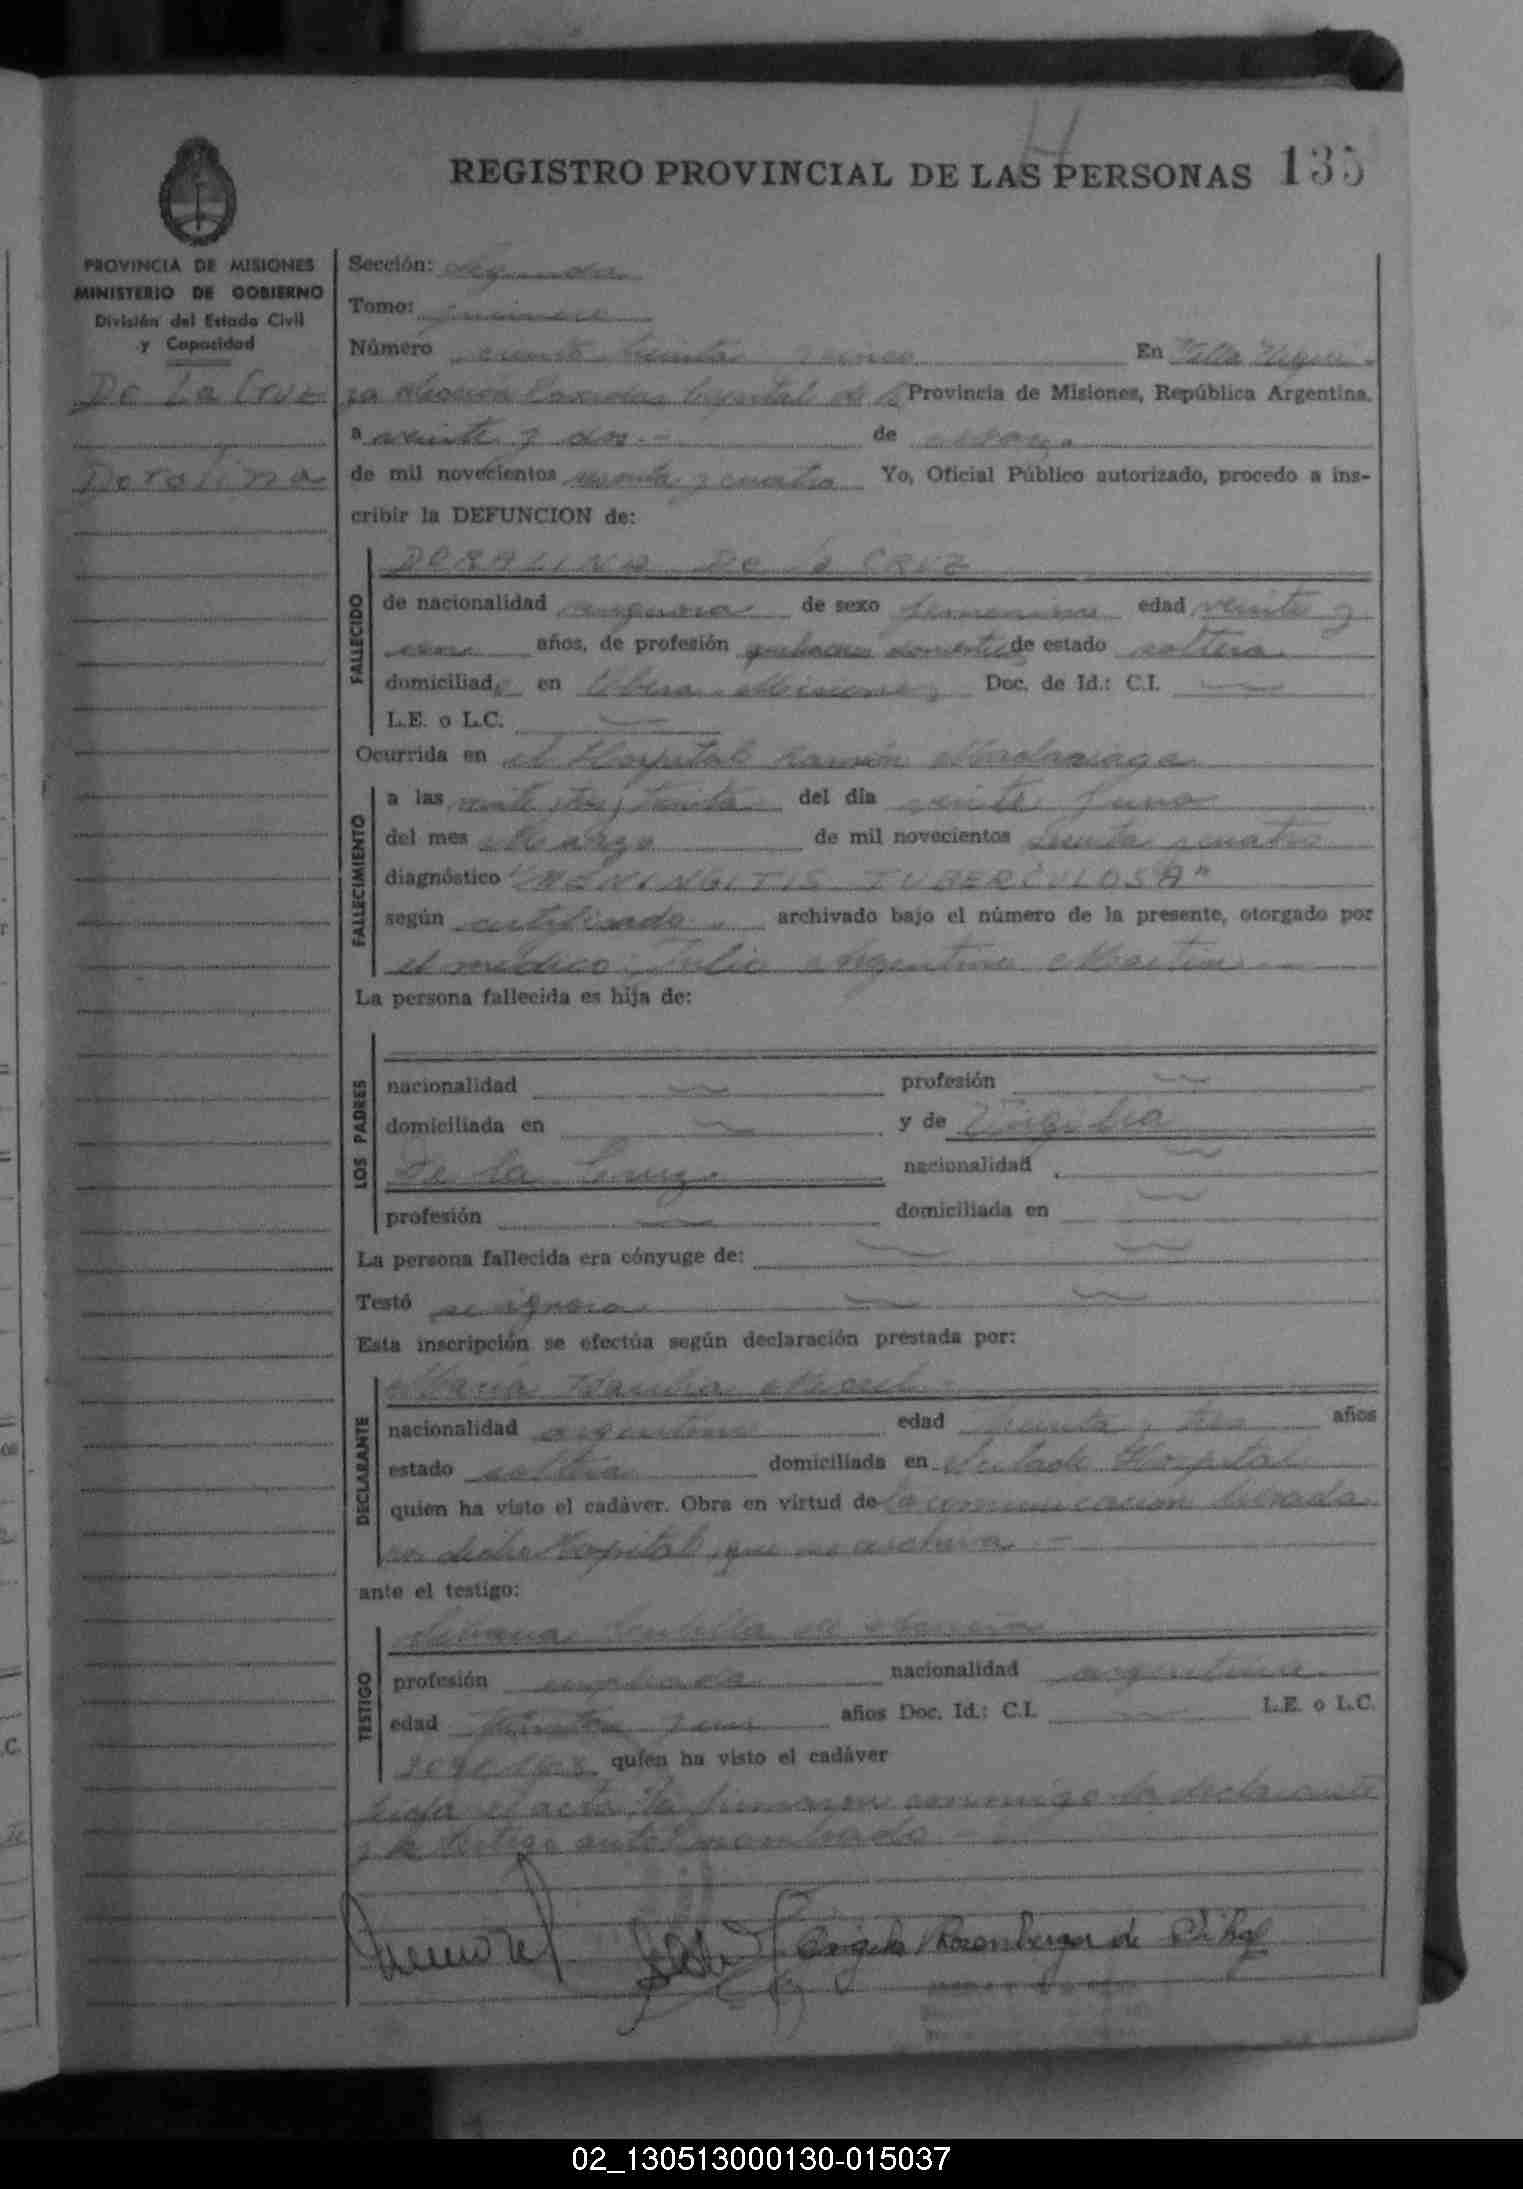 REGISTRO PROVINCIAL DE LAS PERSONAS 135
PROVINCIA DE MISIONES
MINISTERIO DE GOBIERNO
División del Estado Civil
y Capacidad
De La Cruz
Derolina
Sección: Segunda
Tomo: primero
Número ciento treinta y cinco En Villa Urqui-
za Sección Posadas Capital de la Provincia de Misiones, República Argentina.
a veinte y dos.- de marzo.
de mil novecientos sesenta y cuatro Yo, Oficial Público autorizado, procedo a ins-
cribir la DEFUNCION de:
FALLECIDO
DEROLINA De la CRUZ
de nacionalidad argentina de sexo femenino edad veinte y
años, de profesión quehaceres domesticos de estado soltera
domiciliada en Obera Misiones Doc. de Id.: C.I.
L.E. o L.C.
Ocurrida en el Hospital Ramón Madariaga
FALLECIMIENTO
a las veinte y treinta del día veinte y uno
del mes Marzo de mil novecientos sesenta y cuatro
diagnóstico "MENINGITIS TUBERCULOSA"
según certificado archivado bajo el número de la presente, otorgado por
el médico: Julio Argentino Martin
La persona fallecida es hija de:
LOS PADRES
nacionalidad profesión
domiciliada en y de
De La Cruz nacionalidad
profesión domiciliada en
La persona fallecida era cónyuge de:
Testó se ignora
Esta inscripción se efectúa según declaración prestada por:
DECLARANTE
Maria
nacionalidad argentina edad treinta y tres años
estado soltera domiciliada en citado Hospital
quien ha visto el cadáver. Obra en virtud de la comunicación librada
por dicho Hospital, que se archiva.-
ante el testigo:
TESTIGO
profesión empleada nacionalidad argentina
edad treinta y años Doc. Id.: C.I. L.E. o L.C.
quien ha visto el cadáver
Leída el acta, la firmaron conmigo la declarante
y la testigo antes nombrada.-
Angela Rosenberger de
02_130513000130-015037